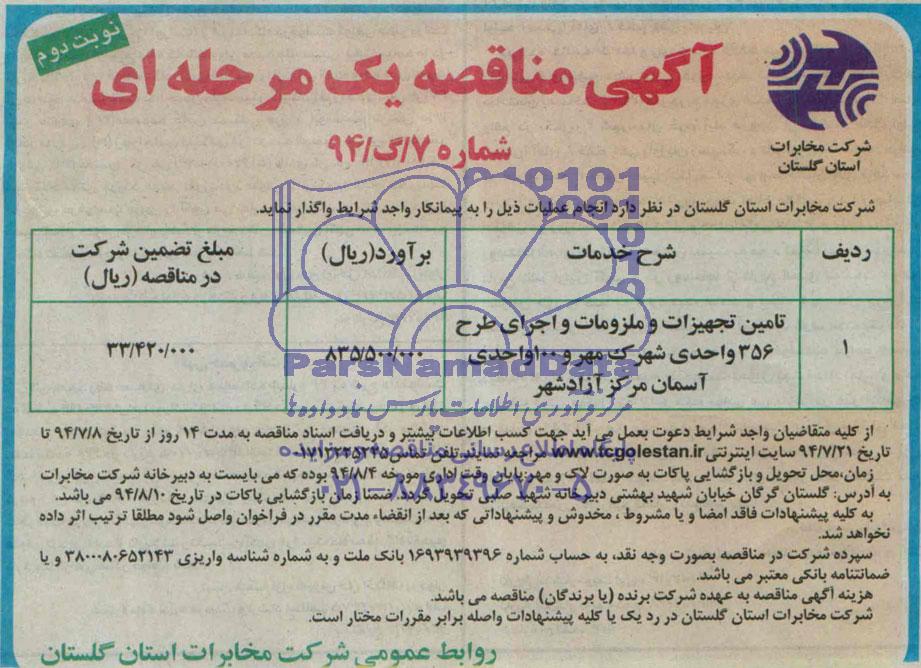 نوبت دوم
آگهی مناقصه یک مرحله ای
شماره ۷/گ/۹۴
شرکت مخابرات
استان گلستان
شرکت مخابرات استان گلستان در نظر دارد انجام عملیات ذیل را به پیمانکار واجد شرایط واگذار نماید.
ردیف شرح خدمات برآورد(ریال) مبلغ تضمین شرکت در مناقصه (ریال)
۱ تامین تجهیزات و ملزومات و اجرای طرح ۳۵۶ واحدی شهرک مهر و ۱۰۰واحدی آسمان مرکز آزادشهر ۸۳۵/۵۰۰/۰۰۰ ۳۳/۴۲۰/۰۰۰
010101
ParsNamadData
مرکز فرآوری اطلاعات پارس نماد داده ها
از کلیه متقاضیان واجد شرایط دعوت بعمل می آید جهت کسب اطلاعات بیشتر و دریافت اسناد مناقصه به مدت ۱۴ روز از تاریخ ۹۴/۷/۸ تا
تاریخ ۹۴/۷/۲۱ سایت اینترنتی www.tcgolestan.ir مراجعه نمایند تلفن تماس
زمان،محل تحویل و بازگشایی پاکات به صورت لاک و مهر پایان وقت اداری مورخه ۹۴/۸/۴ بوده که می بایست به دبیرخانه شرکت مخابرات
به آدرس: گلستان گرگان خیابان شهید بهشتی دبیرخانه تحویل گردد. ضمنا زمان بازگشایی پاکات در تاریخ ۹۴/۸/۱۰ می باشد.
به کلیه پیشنهادات فاقد امضا و یا مشروط ، مخدوش و پیشنهاداتی که بعد از انقضاء مدت مقرر در فراخوان واصل شود مطلقا ترتیب اثر داده
نخواهد شد.
سپرده شرکت در مناقصه بصورت وجه نقد، به حساب شماره ۱۶۹۳۹۳۹۳۹۶ بانک ملت و به شماره شناسه واریزی ۳۸۰۰۰۸۰۶۵۲۱۴۳ و یا
ضمانتنامه بانکی معتبر می باشد.
هزینه آگهی مناقصه به عهده شرکت برنده (یا برندگان) مناقصه می باشد.
شرکت مخابرات استان گلستان در رد یک یا کلیه پیشنهادات واصله برابر مقررات مختار است.
روابط عمومی شرکت مخابرات استان گلستان